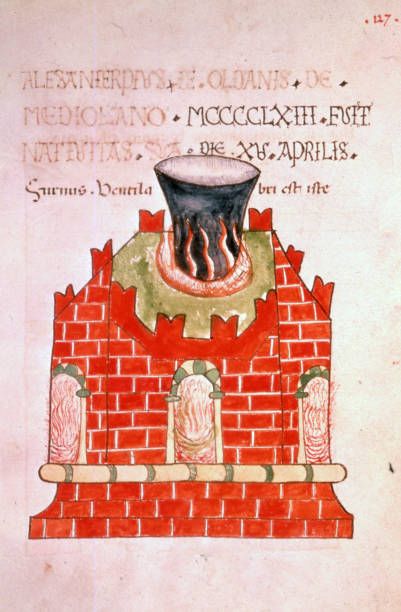 · 127 ·
OLDANIS · DE ·
MEDIOLANO · MCCCCCLXIII · FUIT
NATIVITAS · SVA · DIE · XV · APRILIS ·
Furnus · Ventila bri est iste